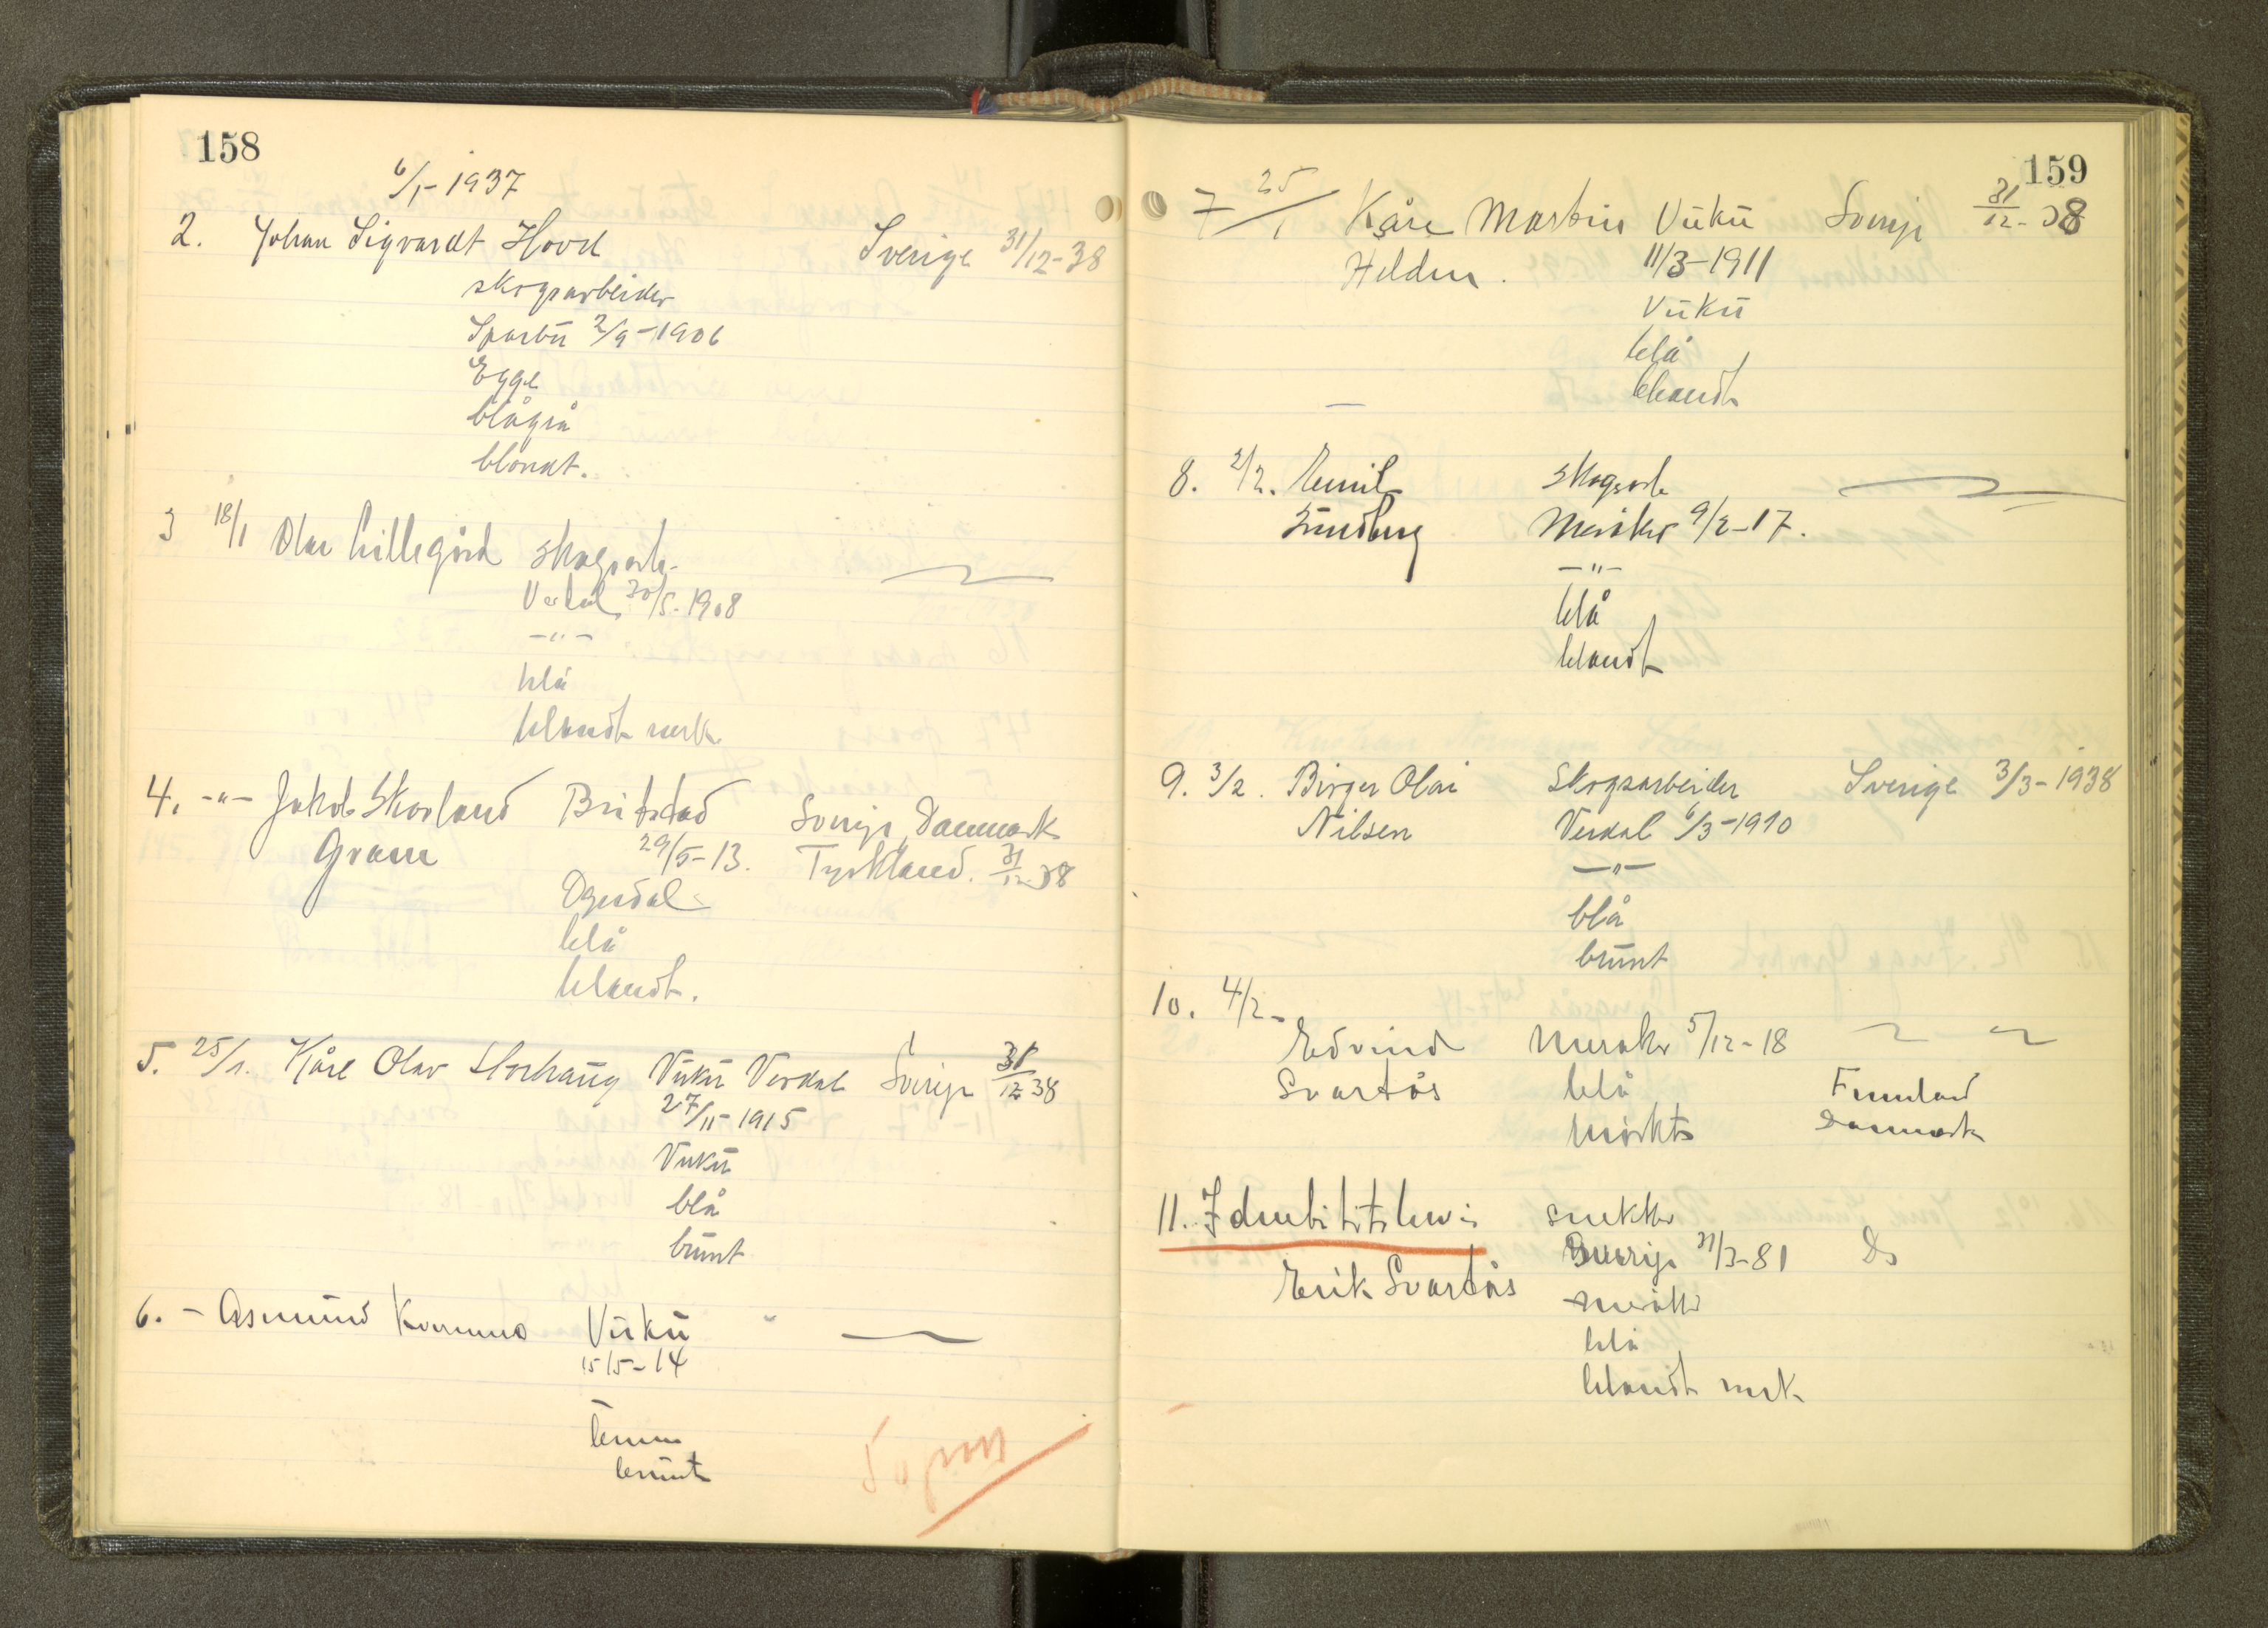 158
6/1-1937
2. Johan Sigvardt Hovd Sverige 31/12-38
skogsarbeider
Sparbu 2/9-1906
Egge
blågrå
blondt.
3 18/1 Olav Lillegård skogsarb.
Verdal 30/5-1908
-"-
blå
blondt mørk
4. -"- Jakob Skorland Britstad Sverige, Danmark
Gram 29/5-13. Tyskland. 31/12-38
Ogndal
blå
blondt.
5. 25/1. Kåre Olav Storhaug Vuku Verdal Sverige 31/12 38
27/11-1915
Vuku
blå
brunt
6. - Asmund Vuku
15/5-14
-
brunt
159
7 25/1 Kåre Martin Vuku Sverige 31/12-38
Helden. 11/3-1911
Vuku
blå
blondt
8. 2/2. Emil skogsarb
Lundberg Meråker 9/2-17.
-"-
blå
blondt
9. 3/2. Birger Olai Skogsarbeider Sverige 3/3-1938
Nilsen Verdal 6/3-1910
-"-
blå
brunt
10. 4/2-
Edvind Meråker 5/12-18
Svartås blå Finnland
mørkt Danmark
11. Identitetsbevis snekker
Sverige 31/3-81 Do
Erik Svartås Meråker
blå
blondt mørk